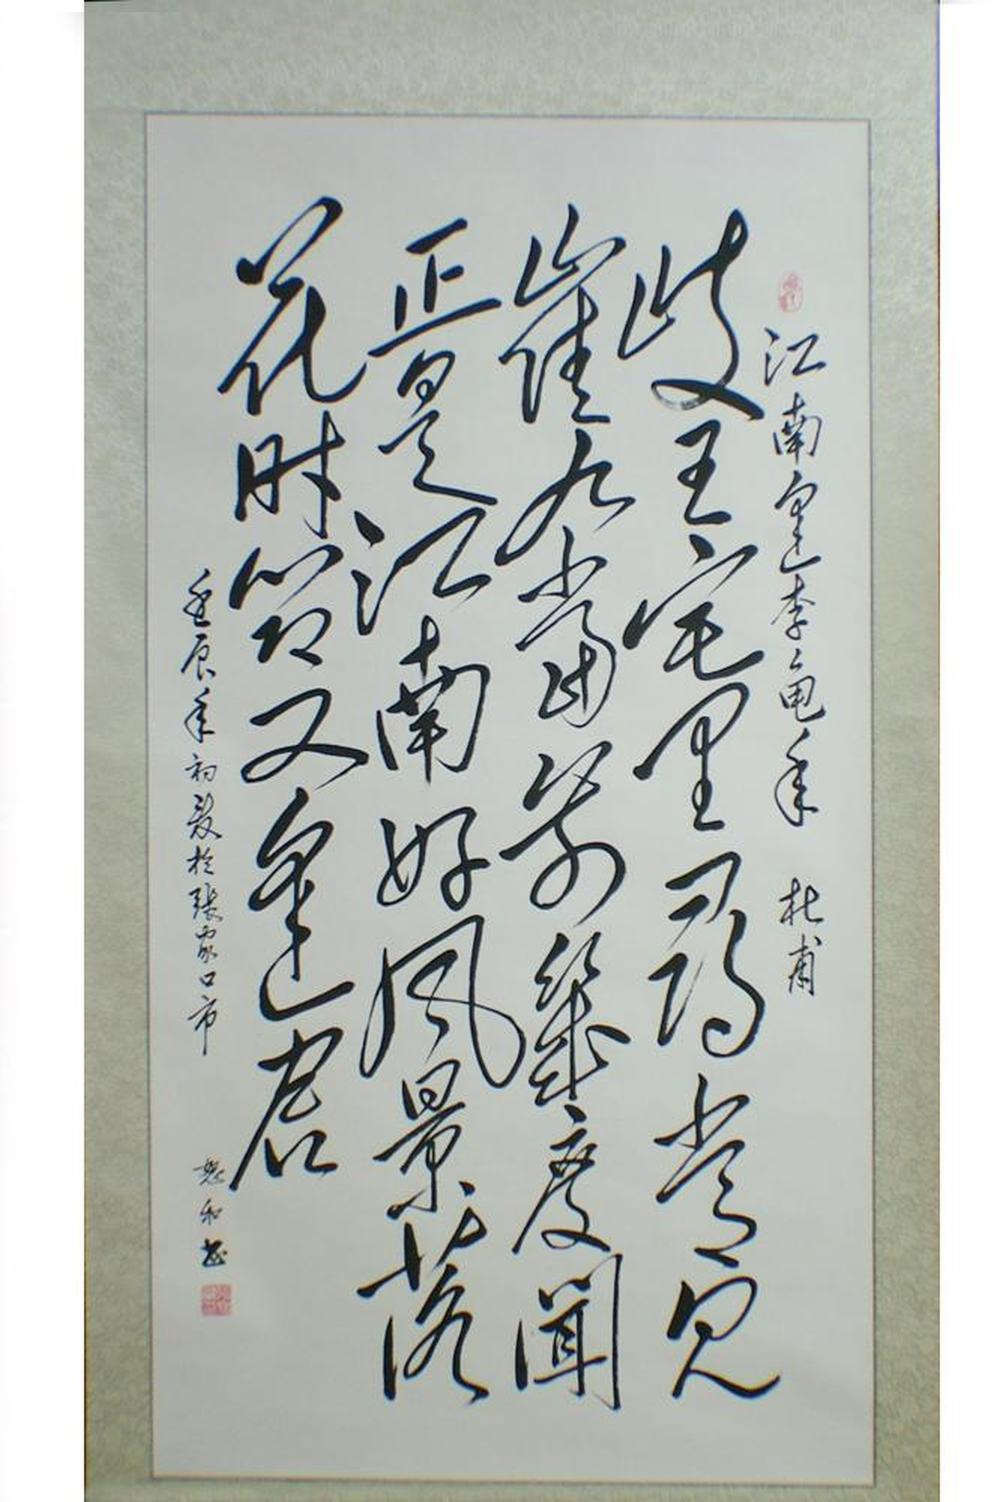 江南逢李龟年 杜甫
岐王宅里尋常见
崔九堂前幾度聞
正是江南好风景落
花时節又逢君
壬辰年初夏於张家口市 和书